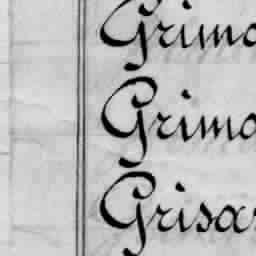 Grimo
Grimo
Grisar